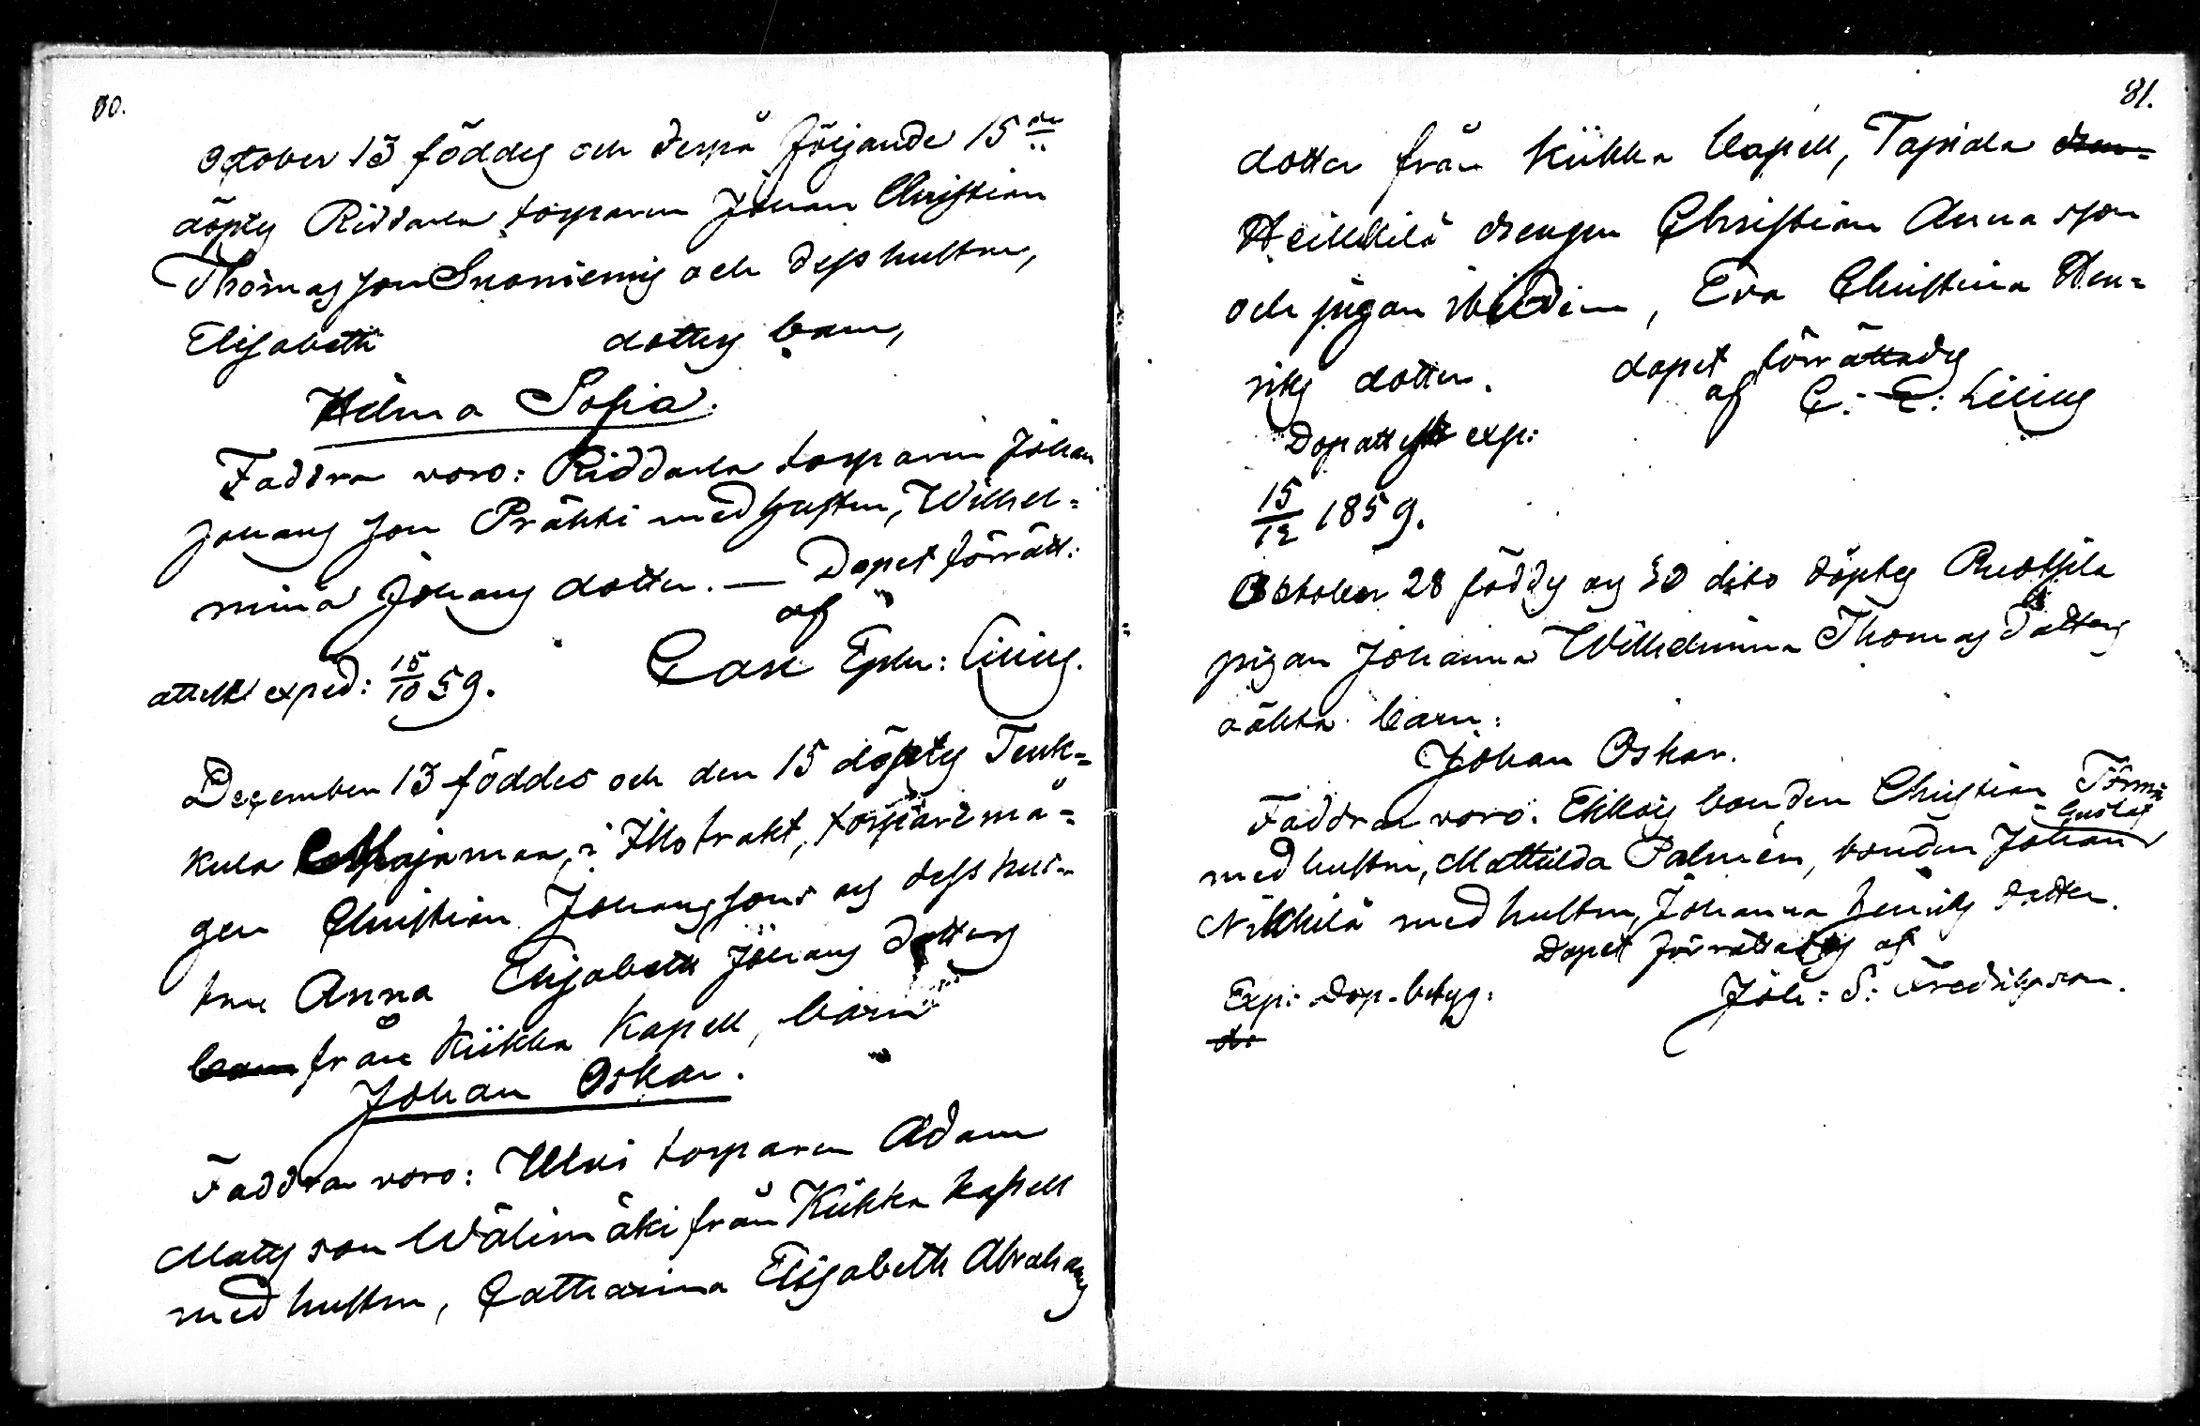 80.
October 13 föddes och derpå följande 15de
döptes Riddarla torparen Johan Christian
Thomas son Snoniemis och dess hustru,
Elisabeth dotters barn,
Hilma Sofia.
Faddra voro: Riddarla torparen Johan
Johans son Prähti med hustru, Wilhel=
mina Johans dotter. — Dopet förrätt:
af
attest exped: 15/10 59. Carl Ephr: Lilius.
December 13 föddes och den 15 döptes Teuk=
kula Majamaa, i Illo trakt, torpare må=
gen Christian Johanssons og dess hus-
tru Anna Elisabeth Johans dotters
barn från Kiikka Kapell, barn
Johan Oskar.
Faddrar voro: Ulvi torparen Adam
Matts son Wälimäki från Kiikka kapell
med hustru, Catharina Elisabeth Abrahams
81.
dotter från Kiikka Capell, Tapiala dren=
Heikkilä drengen Christian Anna son
och pigan ibidem, Eva Christina Hen=
riks dotter. dopet förrättades
af C: E: Lilius
Dop attest exp:
15/12 1859.
October 28 föddes og 30 dito döptes Ruotsila
pigan Johanna Wilhelmina Thomas dotters
oäkta barn:
Johan Oskar.
Faddrar voro: bonden Christian Törmä
med hustru, Mathilda Palmén, bonden Johan Gustaf
Nikkilä med hustru, Johanna Henriks dotter.
Dopet förrättades af
Exp: Dop-betyg: Joh: S: Fredriksson.
d: